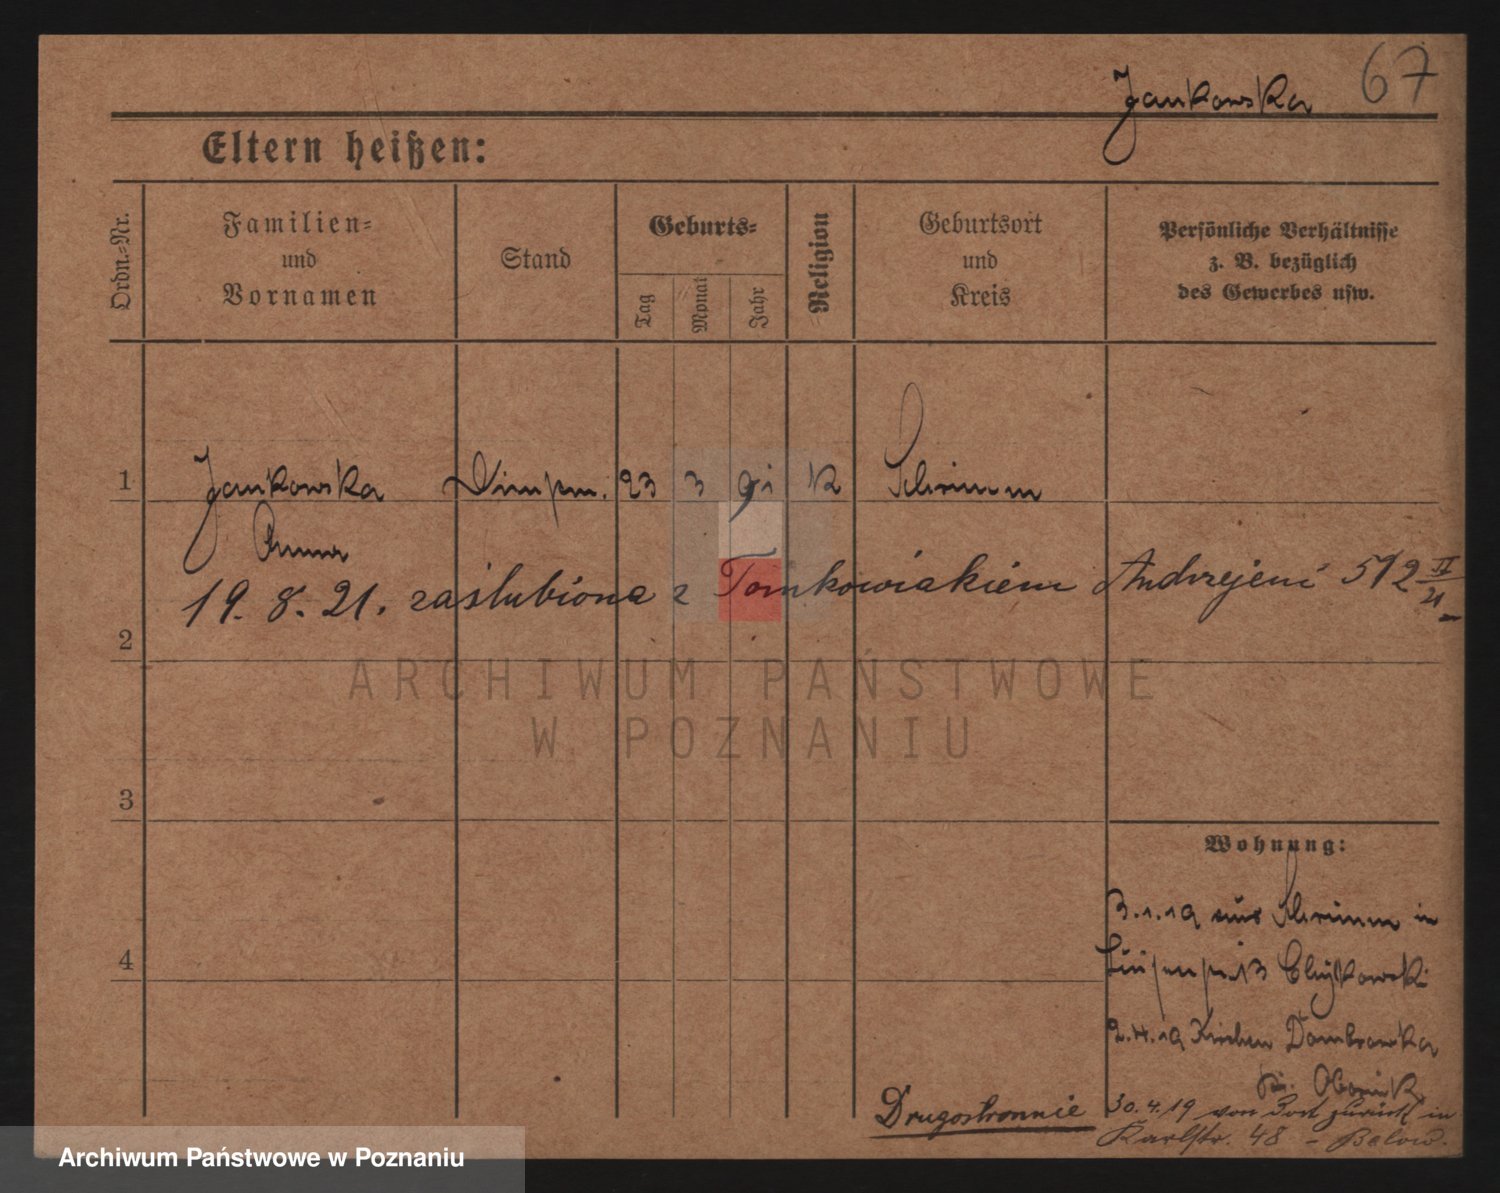 Jankowska 67
Eltern heißen:
Ordn.-Nr.
Familien-
und
Vornamen
Stand
Geburts-
Tag
Monat
Jahr
Religion
Geburtsort
und
Kreis
Persönliche Verhältnisse
z. B. bezüglich
des Gewerbes usw.
1 Jankowska 23 3 91 K Schrimm
Anna
19. 8. 21. zaślubiona z Tomkowiakiem Andrzejem 512
2
ARCHIWUM PAŃSTWOWE
W POZNANIU
3
Wohnung:
3.1.19 aus Schrimm in
4
2.4.19 Kirchen Dombrowka
Kr. Obornik
Drugostronnie
30.4.19 von dort zurück in
Karlstr. 48 - Below.
Archiwum Państwowe w Poznaniu